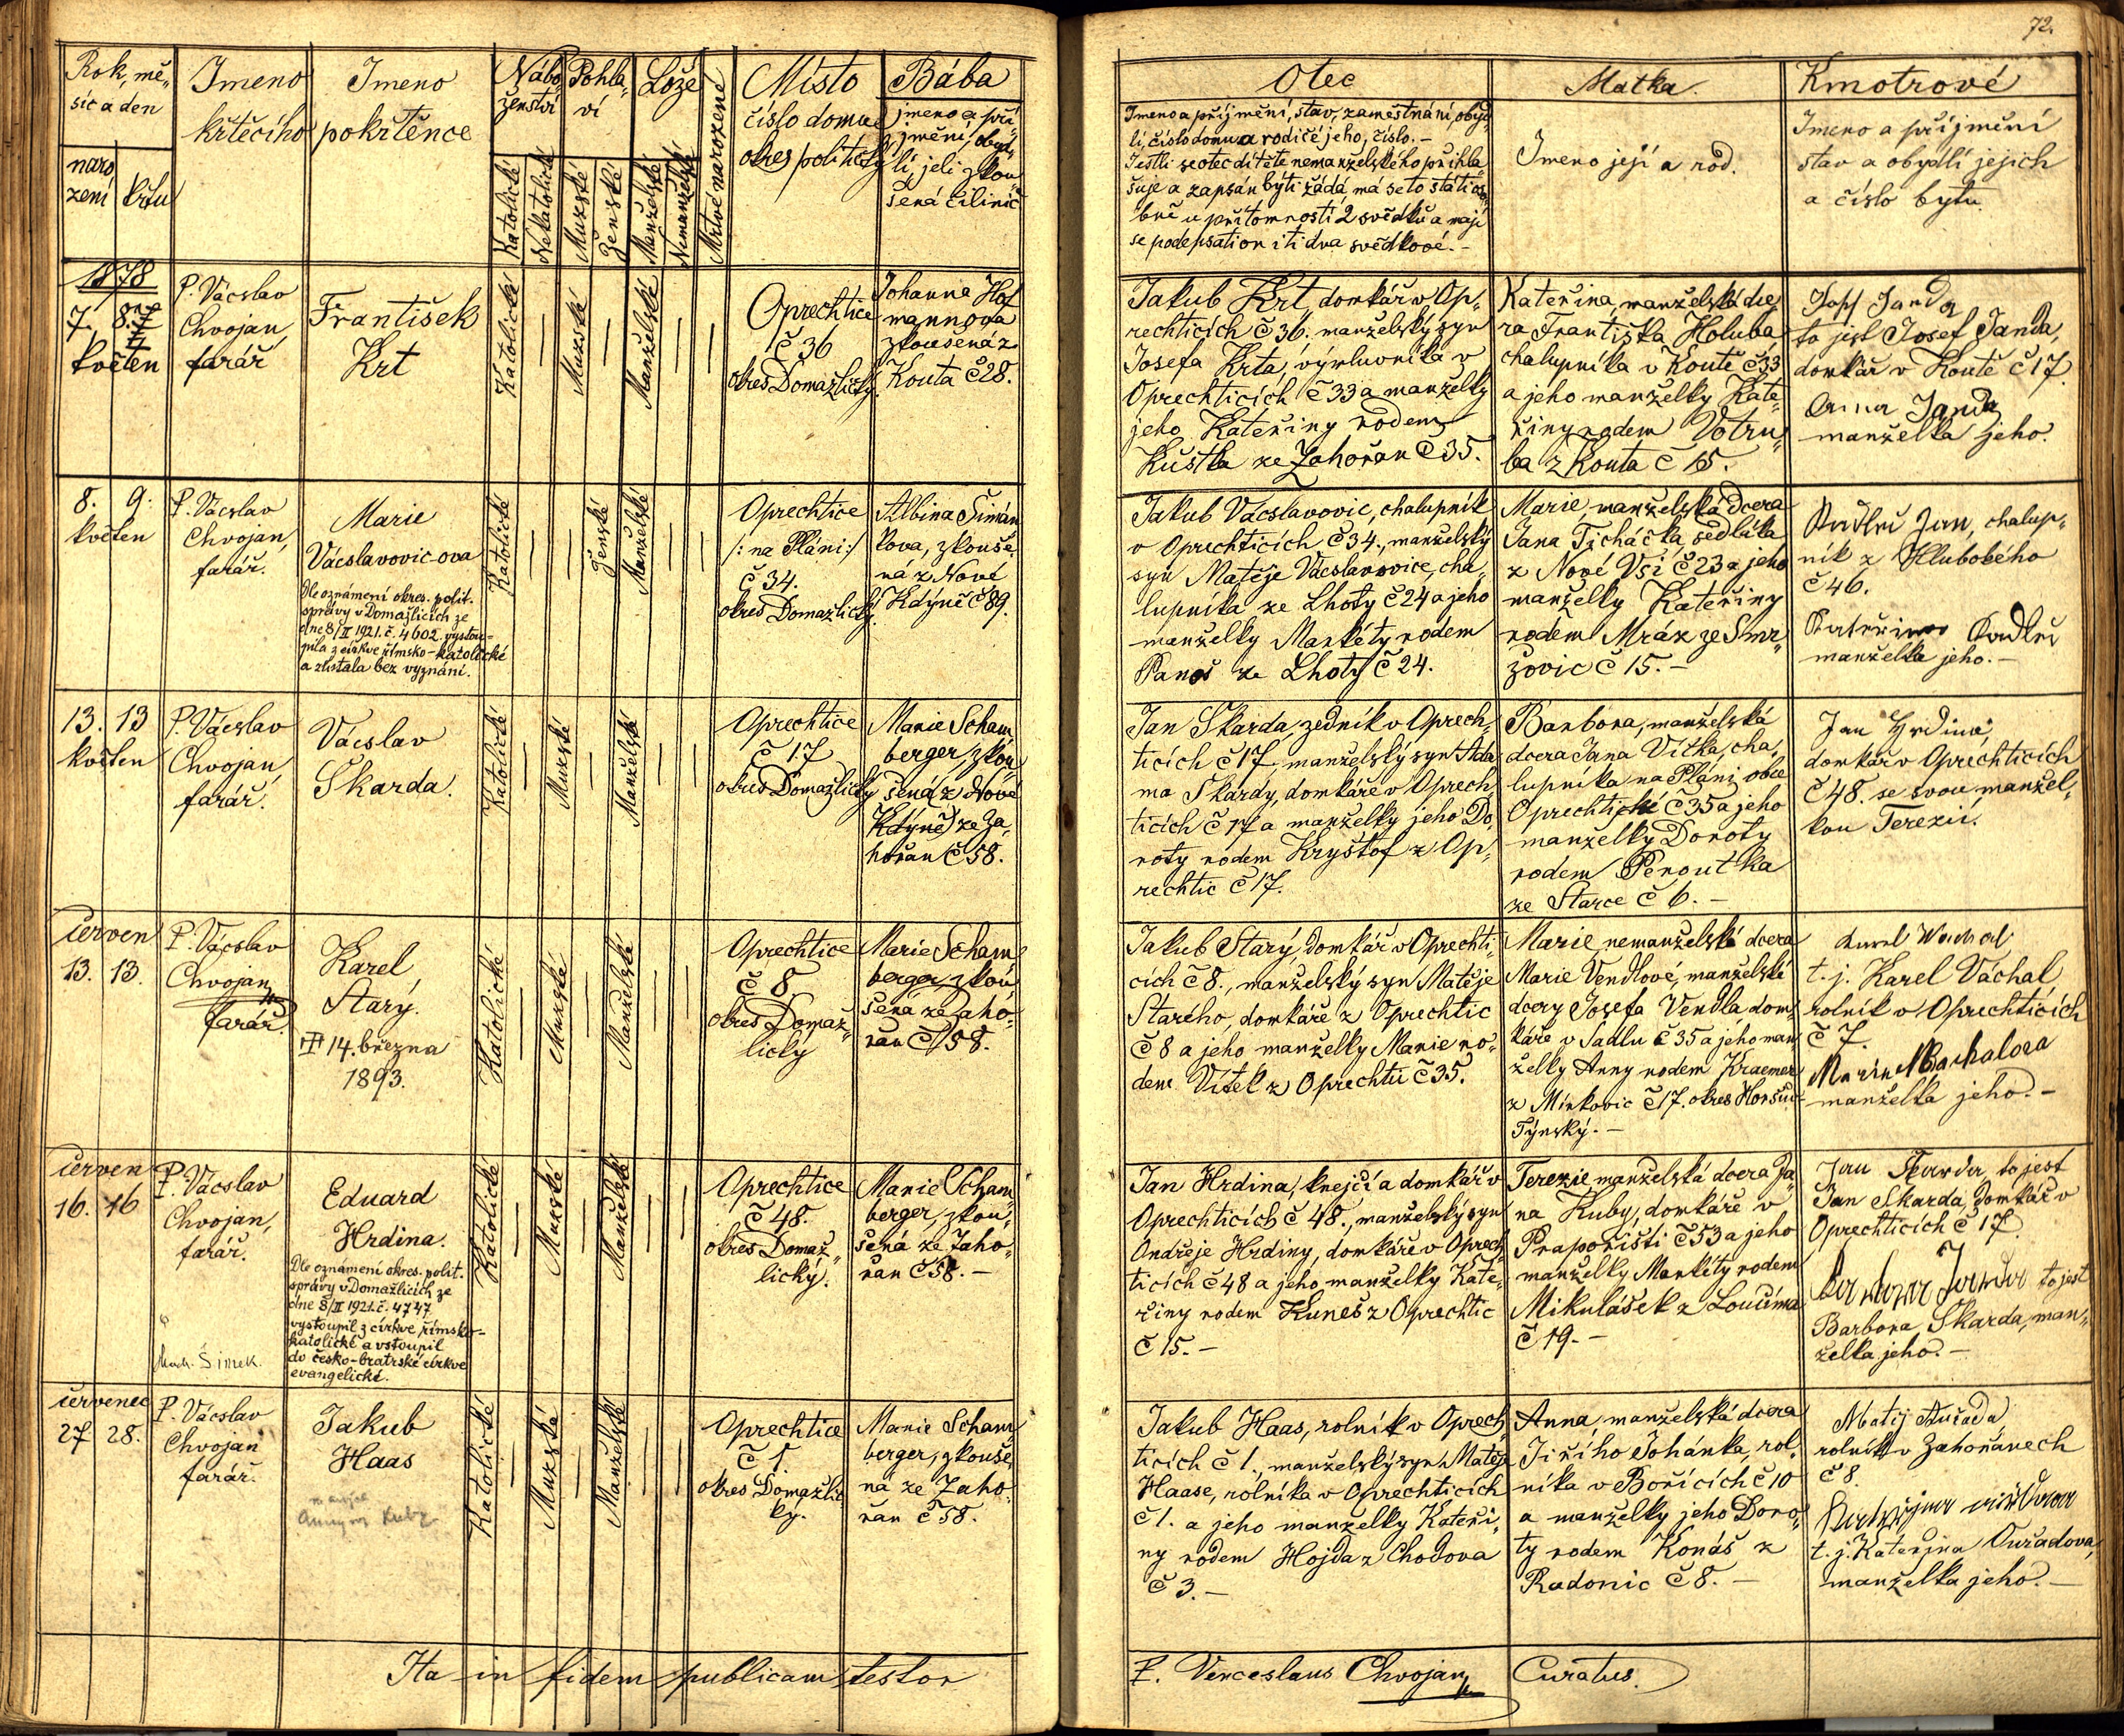 72.
Rok, mě-
síc a den
naro
zení
křtu
Jmeno
křtěcího
Jmeno
pokřtěnce
Nábo-
ženství
Katolické
Nekatolické
Pohla-
ví
Mužské
Ženské
Lože
Manželské
Nemanželské
Mrtvě narozené
Místo
číslo domu
okres politický
Bába
jmeno a pří-
jmění, obyd-
lí, jeli zkou-
šená čili nic
Otec
Jmeno a příjmění, stav, zaměstnání, obyd-
lí, číslo domu a rodičé jeho, číslo. -
Jestli se otec dítěte nemanželského přihla-
šuje a zapsán býti žádá má se to státi oso-
bně u přítomnosti 2 svědků a mají
se podepsati on i ti dva svědkové. -
Matka.
Jmeno její a rod.
Kmotrové
Jmeno a příjmění
stav a obydlí jejich
a číslo bytu.
1878
7. 8.
květen
P. Vácslav
Chvojan,
farář
František
Krt
Katolické
Mužské
Manželské
Oprechtice
č 36
okres Domažlický.
Johanna Hof
mannova
zkoušená z
Kouta č 28.
Jakub Krt, domkář v Op-
rechticích č 36. manželský syn
Josefa Krta, výmluvníka v
Oprechticích č 33 a manželky
jeho Kateřiny rodem
Kuštka ze Zahořan č 35.
Kateřina, manželská dce
ra Františka Holuba
chalupníka v Koutě č 33
a jeho manželky Kate-
řiny rodem Votru-
ba z Kouta č 15.
Josef Janda
to jest Josef Janda,
domkář v Koutě č 17.
Anna Janda
manželka jeho.
8. 9.
květen
P. Vácslav
Chvojan,
farář.
Marie
Vácslavovic-ova
Dle oznámení okres. polit.
správy v Domažlicích ze
dne 8/II 1921. č. 4602. vystou-
pila z církve římsko-katolické
a zůstala bez vyznání.
Katolické
Ženské
Manželské
Oprechtice
/: na Pláni :/
č 34.
okres Domažlický.
Albina Šimán
kova, zkouše-
ná z Nové
Kdýně č 89.
Jakub Vácslavovic, chalupník
v Oprechticích č 34., manželský
syn Matěje Vácslavovice, cha
lupníka ze Lhoty č 24 a jeho
manželky Markéty rodem
Panoš ze Lhoty č 24.
Marie, manželská dcera
Jana Ticháčka, sedláka
z Nové Vsi č 23 a jeho
manželky Kateřiny
rodem Mráz ze Smr-
žovic č 15. -
Jan, chalup-
ník z Hlubokého
č 46.
manželka jeho. -
13. 13
květen
P. Vácslav
Chvojan,
farář.
Vácslav
Skarda.
Katolické
Mužské
Manželské
Oprechtice
č 17
okres Domažlický
Marie Scham
berger, zkou
šená z Nové
Kdýně) ze Za-
hořan č 58.
Jan Skarda, zedník v Oprech-
ticích č 17, manželský syn Ada
ma Skardy, domkáře v Oprech-
ticích č 17 a manželky jeho Do-
roty rodem Kryštof z Op-
rechtic č 17.
Barbora, manželská
dcera Jana Vítka, cha-
lupníka na Pláni, obce
Oprechtické č 35 a jeho
manželky Doroty
rodem Peroutka
ze Starce č 6. -
Jan Hrdina,
domkář v Oprechticích
č 48. se svou manžel-
kou Terezií.
červen
13. 13.
P. Vácslav
Chvojan,
farář.
Karel
Starý.
14. března
1893.
Katolické
Mužské
Manželské
Oprechtice
č 8
okres Domaž-
lický
Marie Scham
berger, zkou
šená ze Zaho-
řan č 58.
Jakub Starý, domkář v Oprechti-
cích č 8., manželský syn Matěje
Starého, domkáře z Oprechtic
č 8 a jeho manželky Marie ro-
dem Vítek z Oprechtic č 35.
Marie nemanželská dcera
Marie Vendlové, manželské
dcery Josefa Vendla dom-
káře v Sadlu č 35 a jeho man-
želky Anny rodem Kraemer
z Mirkovic č 17. okres Horšův
Týnský. -
Karel Wachal
t. j. Karel Váchal,
rolník v Oprechticích
č 7.
manželka jeho. -
červen
16. 16
P. Vácslav
Chvojan,
farář.
Eduard
Hrdina.
Dle oznámení okres. polit.
správy v Domažlicích ze
dne 8/II 1921. č. 4747
vystoupil z církve římsko-
katolické a vstoupil
do česko-bratrské církve
evangelické.
Šimek.
Katolické
Mužské
Manželské
Oprechtice
č 48.
okres Domaž-
lický.
Marie Scham
berger, zkou-
šená ze Zaho-
řan č 58. -
Jan Hrdina, krejčí a domkář v
Oprechticích č 48., manželský syn
Ondřeje Hrdiny, domkáře v Oprech-
ticích č 48 a jeho manželky Kate-
řiny rodem Kuneš z Oprechtic
č 15. -
Terezie manželská dcera Ja-
na Kuby, domkáře v
Prapořišti č 53 a jeho
manželky Markéty rodem
Mikulášek z Loučima
č 19. -
Jan Skarda, to jest
Jan Skarda, domkář v
Oprechticích č 17.
to jest
Barbora Skarda, man-
želka jeho. -
červenec
27 28.
P. Vácslav
Chvojan
farář.
Jakub
Haas
Katolické
Mužské
Manželské
Oprechtice
č 1.
okres Domažlic-
ký.
Marie Scham
berger, zkouše-
ná ze Zaho-
řan č 58.
Jakub Haas, rolník v Oprech-
ticích č 1., manželský syn Matěje
Haase, rolníka v Oprechticích
č 1. a jeho manželky Kateři-
ny rodem Hojda z Chodova
č 3. -
Anna, manželská dcera
Jiřího Johánka, rol-
níka v Bořicích č 10
a manželky jeho Doro-
ty rodem Konáš z
Radonic č 8. -
Matěj
rolník v Zahořanech
č 8.
t. j. Kateřina Ouřadova,
manželka jeho. -
Ita in fidem publicam testor
P. Venceslaus Chvojan, Curatus.